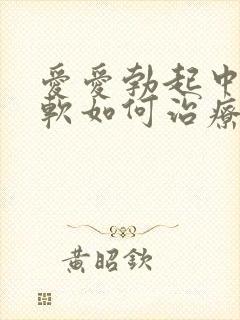 愛愛勃起中
軟如何治療
黃昭欽